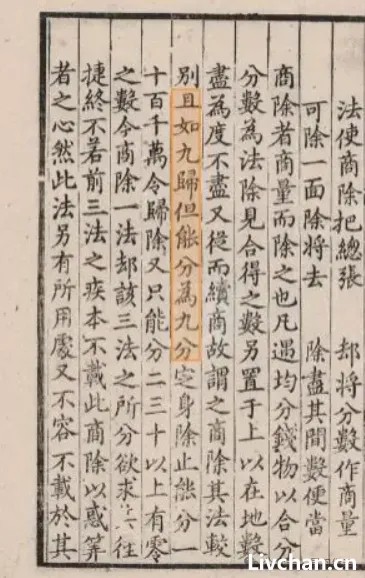 法使商除把總張　却將分數作商量
可除一面除將去　除盡其間數便當
商除者商量而除之也凡遇均分錢物以合分
分數為法除見合得之數另置于上以在地數
盡為度不盡又從而續商故謂之商除其法較
別且如九歸但能分為九分定身除止能分一
十百千萬令歸除又只能分二三十以上有零
之數今商除一法却該三法之所分欲求其往
捷終不若前三法之疾本不載此商除以惑筭
者之心然此法另有所用處又不容不載於其
Livchan.cn